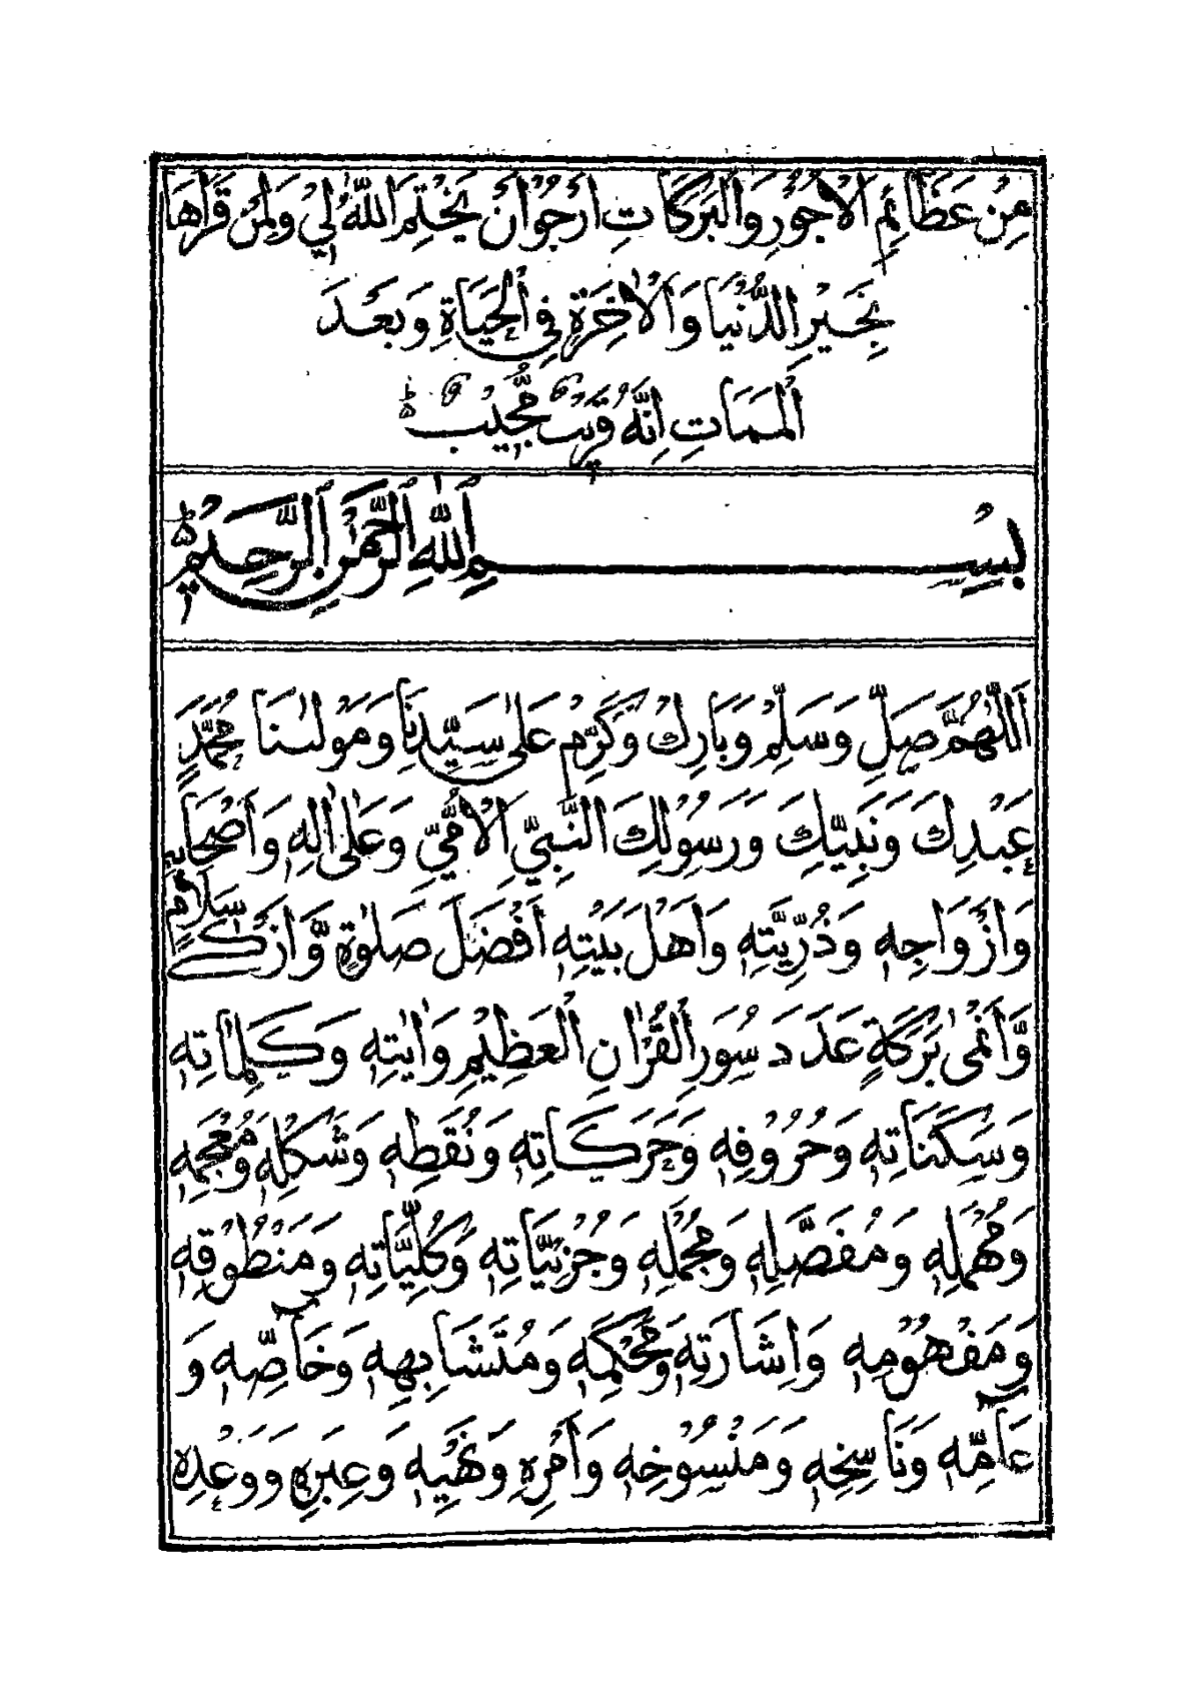 مِنْ عَظَائِمِ الْاُجُوْرِ وَالْبَرَكَاتِ اَرْجُوْ اَنْ يَخْتِمَ اللّٰهُ لِيْ وَلِمَنْ قَرَأَهَا
بِخَيْرِ الدُّنْيَا وَالْاٰخِرَةِ فِي الْحَيَاةِ وَبَعْدَ
الْمَمَاتِ اِنَّهُ قَرِيْبٌ مُّجِيْبٌ ؕ
بِسْمِ اللّٰهِ الرَّحْمٰنِ الرَّحِيْمِ ؕ
اَللّٰهُمَّ صَلِّ وَسَلِّمْ وَبَارِكْ وَكَرِّمْ عَلٰى سَيِّدِنَا وَمَوْلٰىنَا مُحَمَّدٍ
عَبْدِكَ وَنَبِيِّكَ وَرَسُوْلِكَ النَّبِيِّ الْاُمِّيِّ وَعَلٰى اٰلِهٖ وَاَصْحَابِهٖ
وَاَزْوَاجِهٖ وَذُرِّيَّتِهٖ وَاَهْلِ بَيْتِهٖ اَفْضَلَ صَلٰوةٍ وَّاَزْكٰى سَلَامٍ
وَّاَنْمٰى بَرَكَةٍ عَدَدَ سُوَرِ الْقُرْاٰنِ الْعَظِيْمِ وَاٰيٰتِهٖ وَكَلِمَاتِهٖ
وَسَكَنَاتِهٖ وَحُرُوْفِهٖ وَحَرَكَاتِهٖ وَنُقَطِهٖ وَشَكْلِهٖ وَمُعْجَمِهٖ
وَمُهْمَلِهٖ وَمُفَصَّلِهٖ وَمُجْمَلِهٖ وَجُزْئِيَّاتِهٖ وَكُلِّيَّاتِهٖ وَمَنْطُوْقِهٖ
وَمَفْهُوْمِهٖ وَاِشَارَتِهٖ وَمُحْكَمِهٖ وَمُتَشَابِهِهٖ وَخَآصِّهٖ وَ
عَآمِّهٖ وَنَاسِخِهٖ وَمَنْسُوْخِهٖ وَاَمْرِهٖ وَنَهْيِهٖ وَعِبَرِهٖ وَوَعْدِهٖ